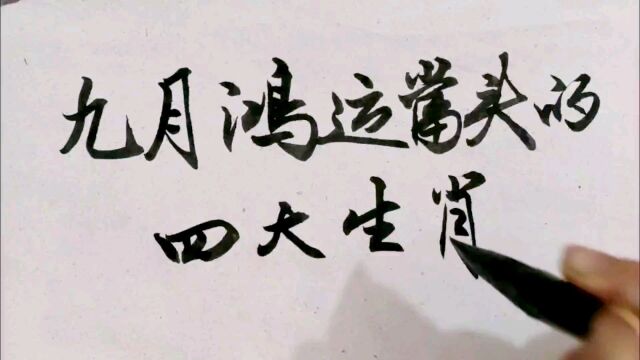 九月鸿运當头的
四大生肖